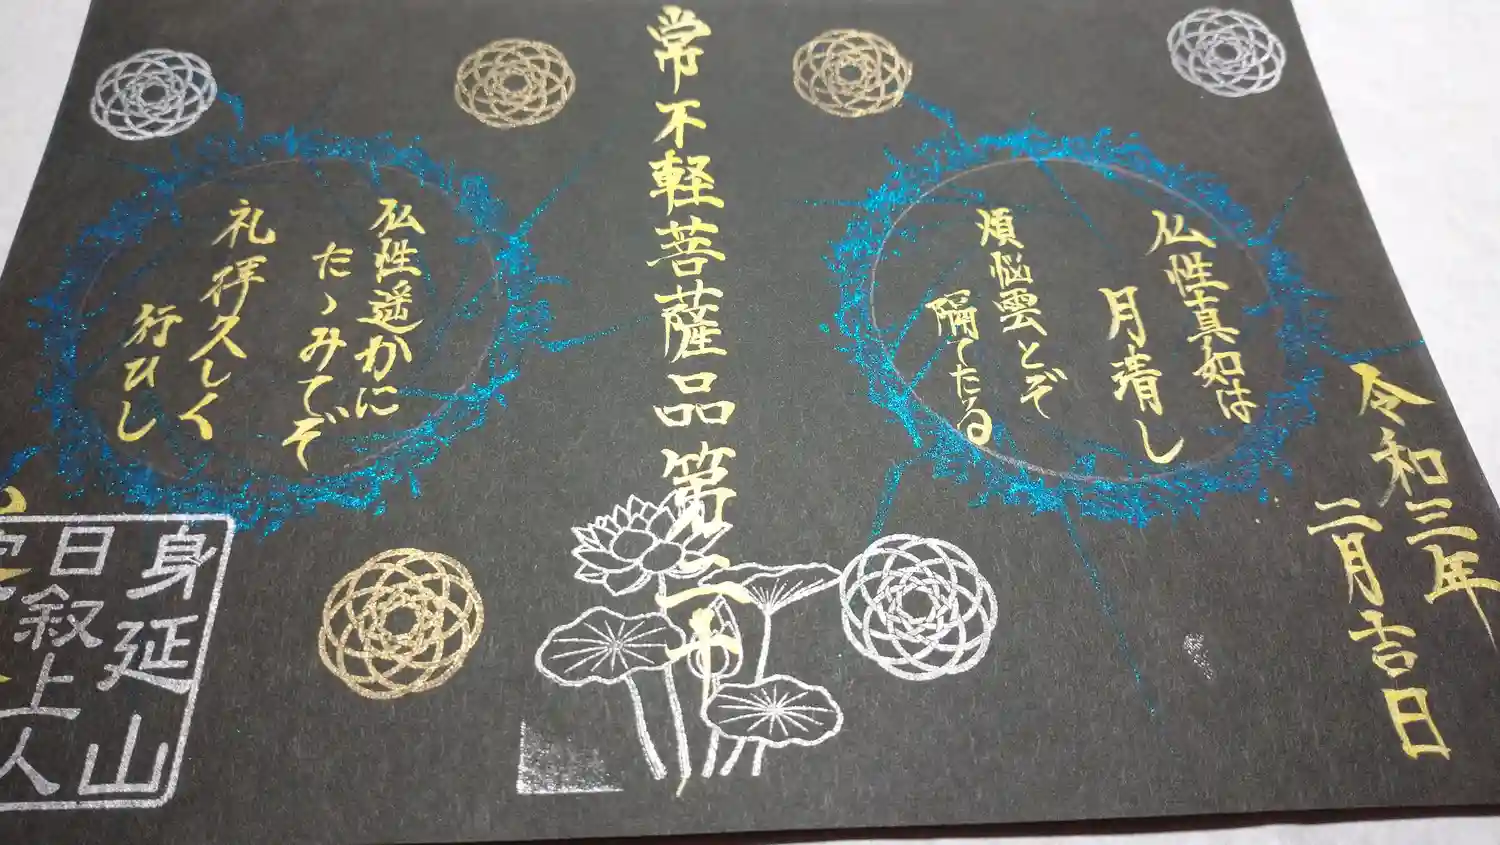 令和三年
二月吉日
仏性真如は
月清し
煩悩雲とぞ
隔てたる
常不軽菩薩品第二十
仏性遥かに
たゝみてぞ
礼拝久しく
行ひし
身延山
日叙上人